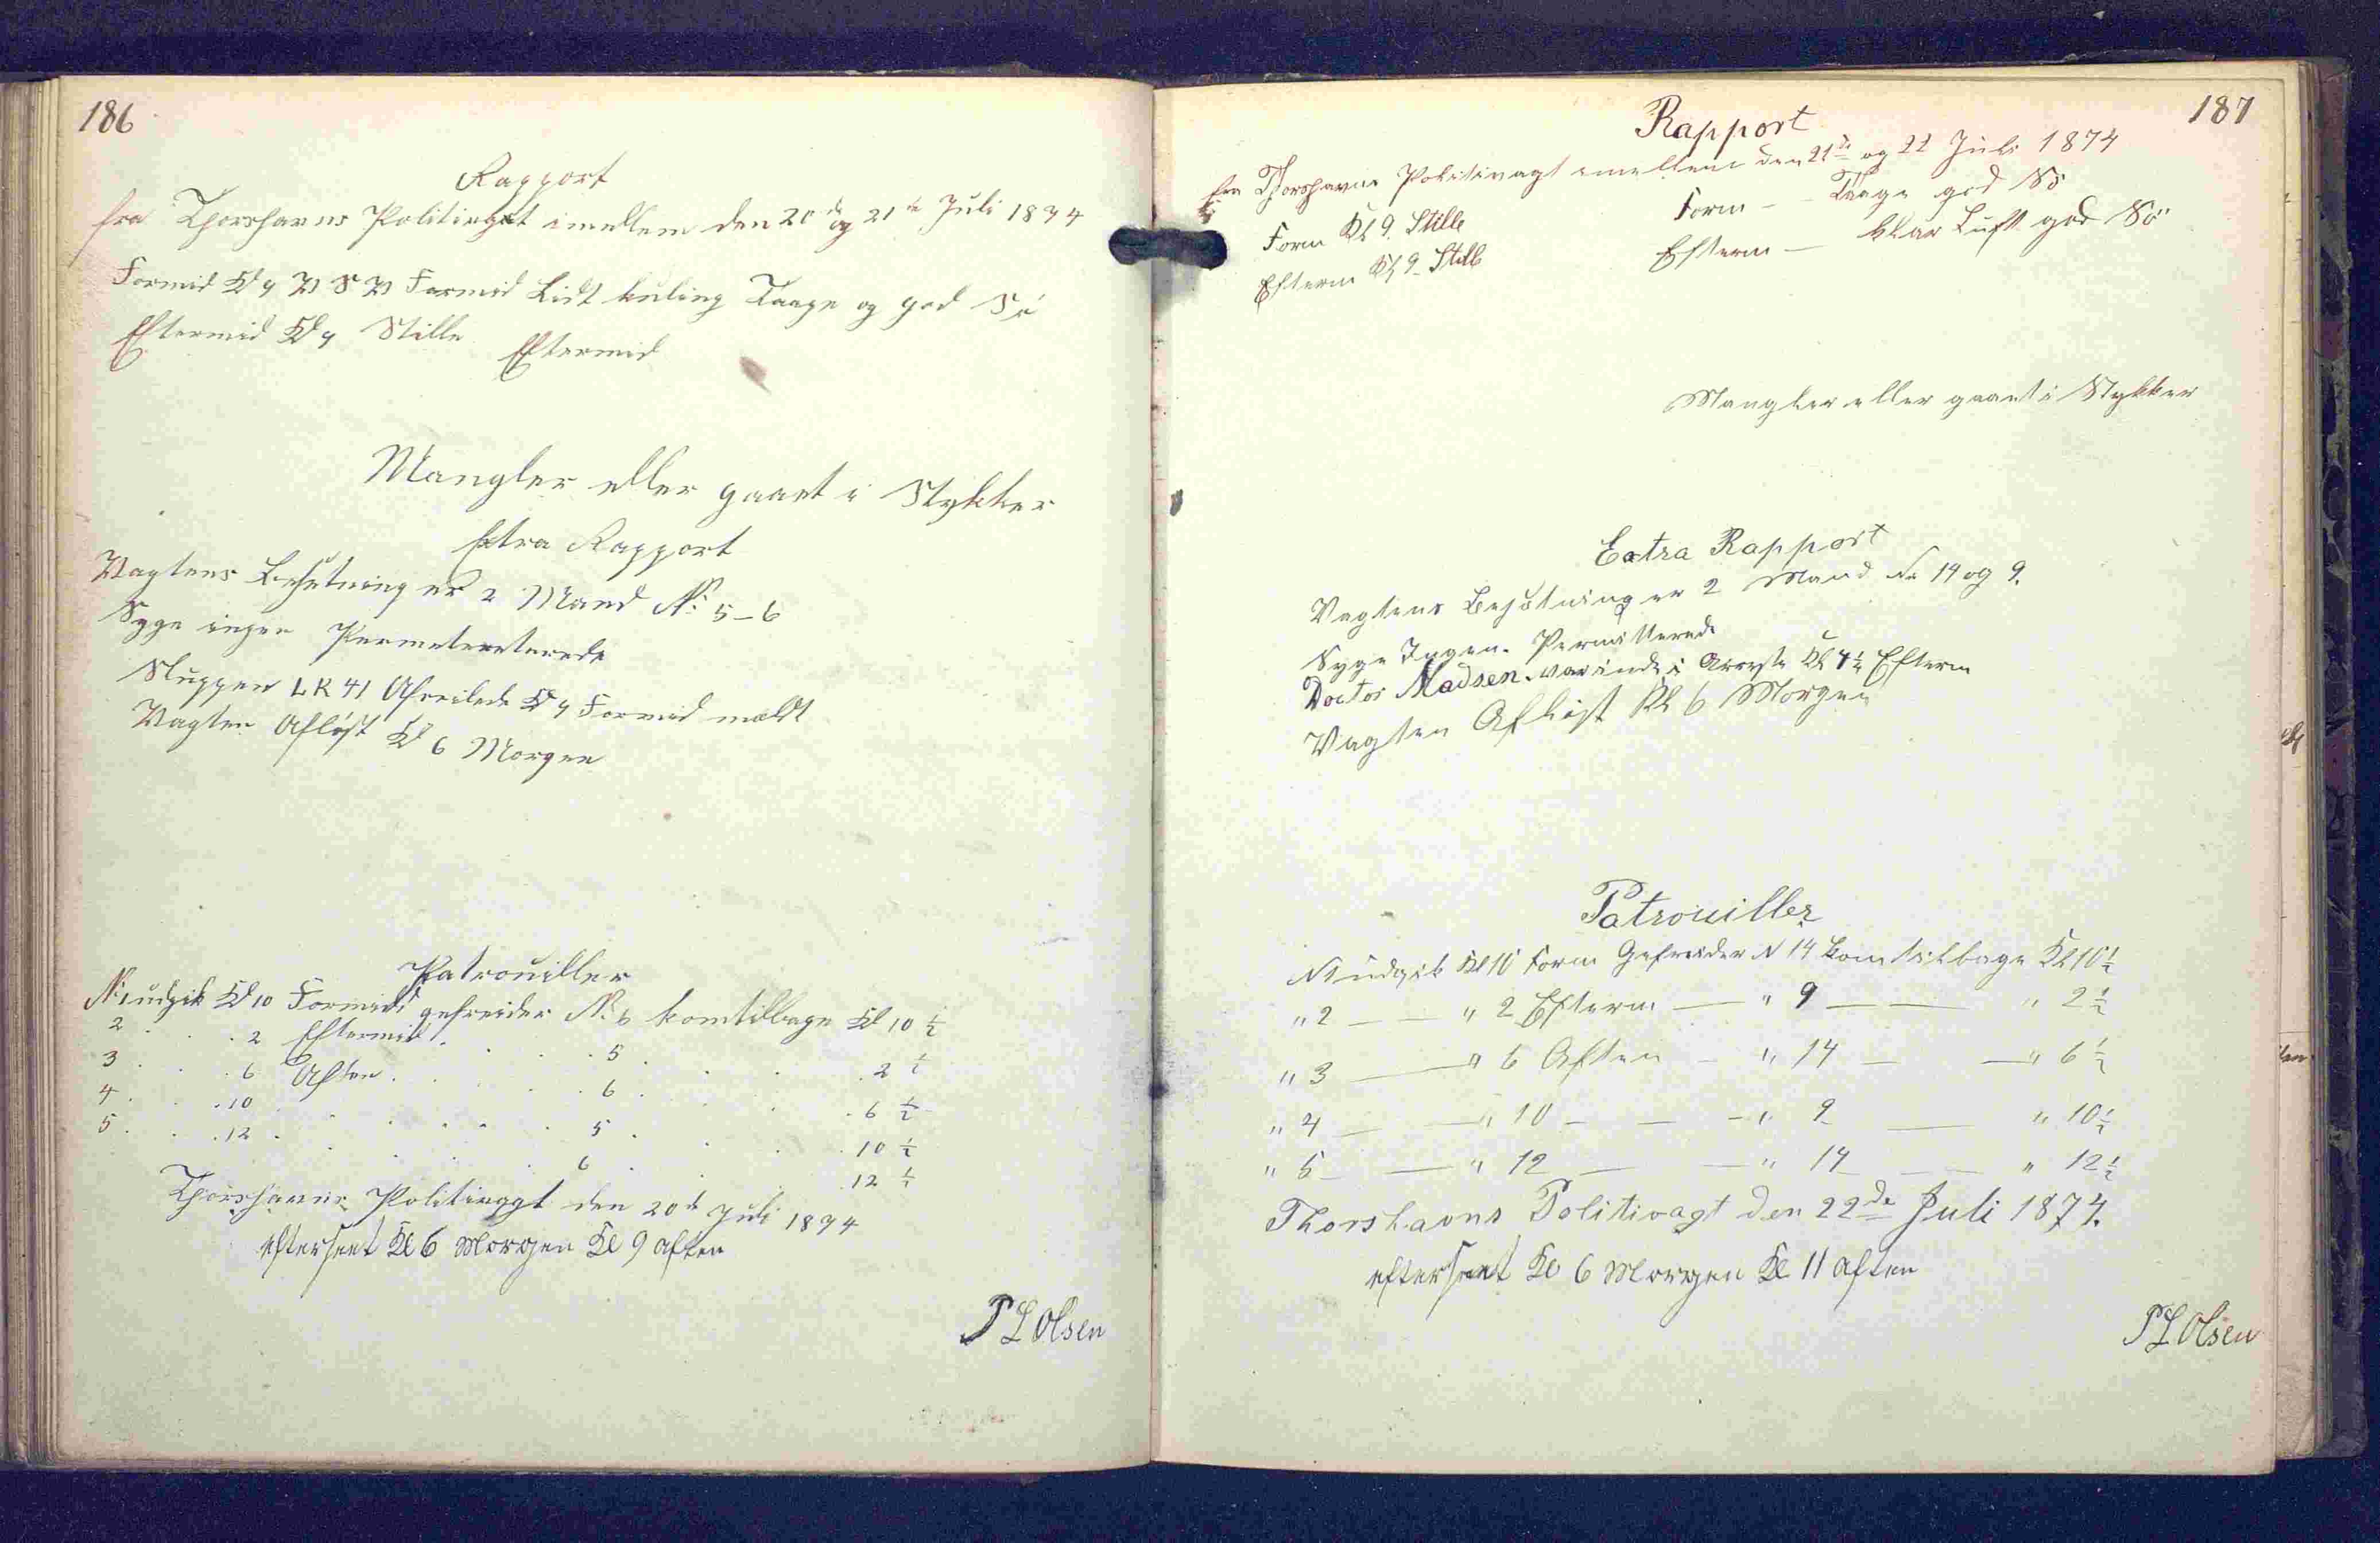 186
Rapport
fra Thorshavns Politivagt imellem den 20de og 21de Juli 1874
Formid Kl 9 V S V Formid Lidt kuling Taage og god Sö
Eftermid Kl 9 Stille Eftermid
Mangler eller gaaet i Stykker
Extra Rapport
Vagtens Besætning er 2 Mand No 5-6
Syge ingen
Sluppen LK 41 Afreilede Kl 9 Formid
Vagten Aflöst Kl 6 Morgen
Patrouiller
No 1 udgik Kl 10 Formid gefreider No 6 komtilbage Kl 10 1/2
2 . . 2 Eftermid . . . 5 . . . 2 1/2
3 . . 6 Aften . . . 6 . . . 6 1/2
4 . . 10 . . . . 5 . . . 10 1/2
5 . . 12 . . . . 6 . . . 12 1/2
Thorshavns Politivagt den 20de Juli 1874
efterseet Kl 6 Morgen Kl 9 aften
P L Olsen
187
Rapport
fra Thorshavns Politivagt imellem den 21de og 22 Juli 1874
Form Kl 9. Stille Form - - Taage god Sö
Efterm Kl 9 - Stille Efterm - klar Luft god Sö
Mangler eller gaaet i Stykker
Extra Rapport
Vagtens Besætning er 2 Mand No 14 og 9.
Syge Ingen. Permitterede
Doctor Madsen. var inde i Arreste Kl 4 1/2 Efterm
Vagten Aflöst Kl 6 Morgen
Patrouiller
N 1 udgik Kl 10 Form Gefreider N 14 kom tilbage Kl 10 1/2
" 2 — — " 2 Efterm — " 9 — — " 2 1/2
" 3 — " 6 Aften — " 14 — — " 6 1/2
" 4 — — " 10 — — — " 9 — " 10 1/2
" 5 — — " 12 — — " 14 — — " 12 1/2
Thorshavns Politivagt den 22de Juli 1874.
efterseet Kl 6 Morgen Kl 11 aften
P L Olsen